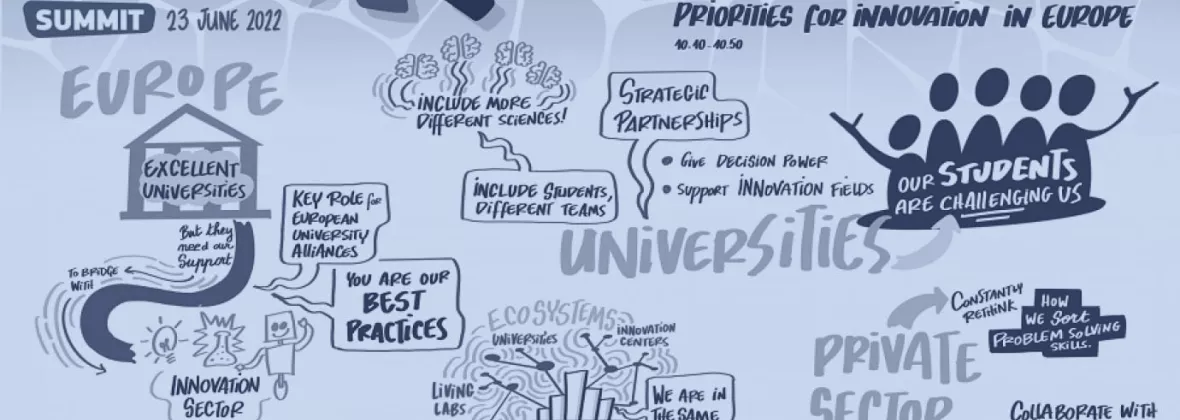 SUMMIT 23 JUNE 2022
PRIORITIES for INNOVATION IN EUROPE
10.10-10.50
EUROPE
EXCELLENT
UNIVERSITIES
But they
need our
Support
TO BRIDGE
WITH
INNOVATION
SECTOR
KEY ROLE for
EUROPEAN
UNIVERSITY
ALLIANCES
YOU ARE OUR
BEST
PRACTICES
INCLUDE MORE
DIFFERENT SCIENCES!
INCLUDE STUDENTS,
DIFFERENT TEAMS
STRATEGIC
PARTNERSHIPS
• GIVE DECISION POWER
• SUPPORT INNOVATION FIELDS
UNIVERSITIES
OUR STUDENTS
ARE CHALLENGING US
ECOSYSTEMS:
UNIVERSITIES
INNOVATION
CENTERS
LIVING
LABS
WE ARE IN
THE SAME
PRIVATE
SECTOR
CONSTANTLY
RETHINK
HOW
WE SORT
PROBLEM SOLVING
SKILLS.
COLLABORATE WITH